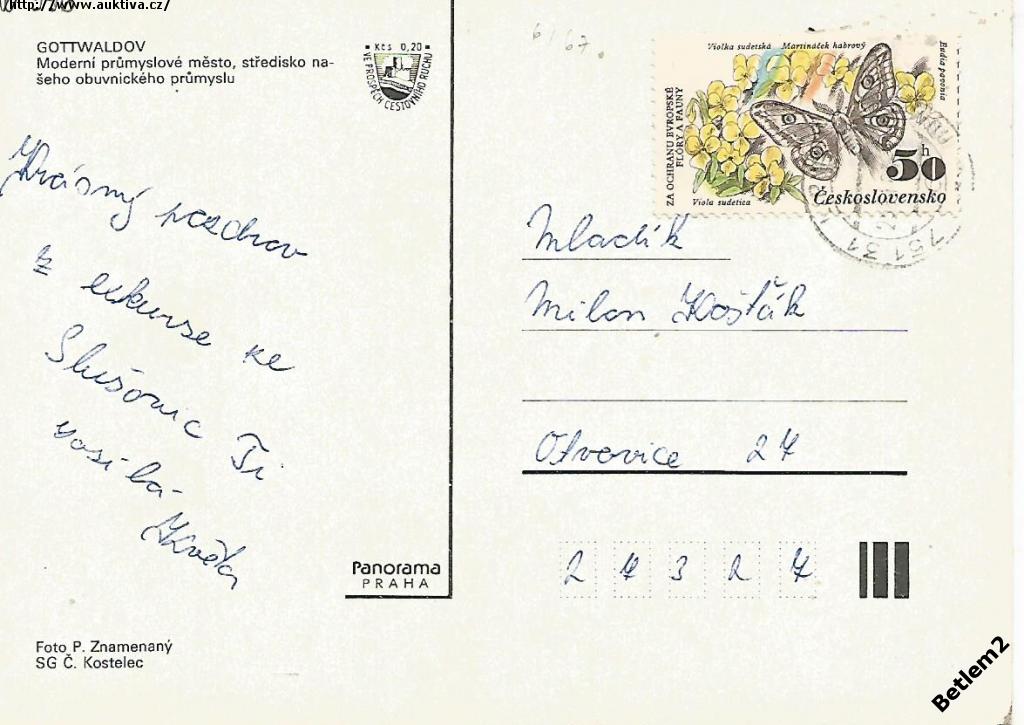 http://www.auktiva.cz/
GOTTWALDOV
Moderní průmyslové město, středisko na-
šeho obuvnického průmyslu
Kčs 0,20
VE PROSPĚCH CESTOVNÍHO RUCHU
Krásný pozdrav
z exkurse ke
Slušovic Ti
posílá
Květa
Panorama
PRAHA
Foto P. Znamenaný
SG Č. Kostelec
61/67
Violka sudetská Martináček habrový
Eudia pavonia
ZA OCHRANU EVROPSKÉ
FLÓRY A FAUNY
50 h
Československo
Viola sudetica
751 31
Mladík
Milan Košťák
Otvovice 27
27327
Betlem2